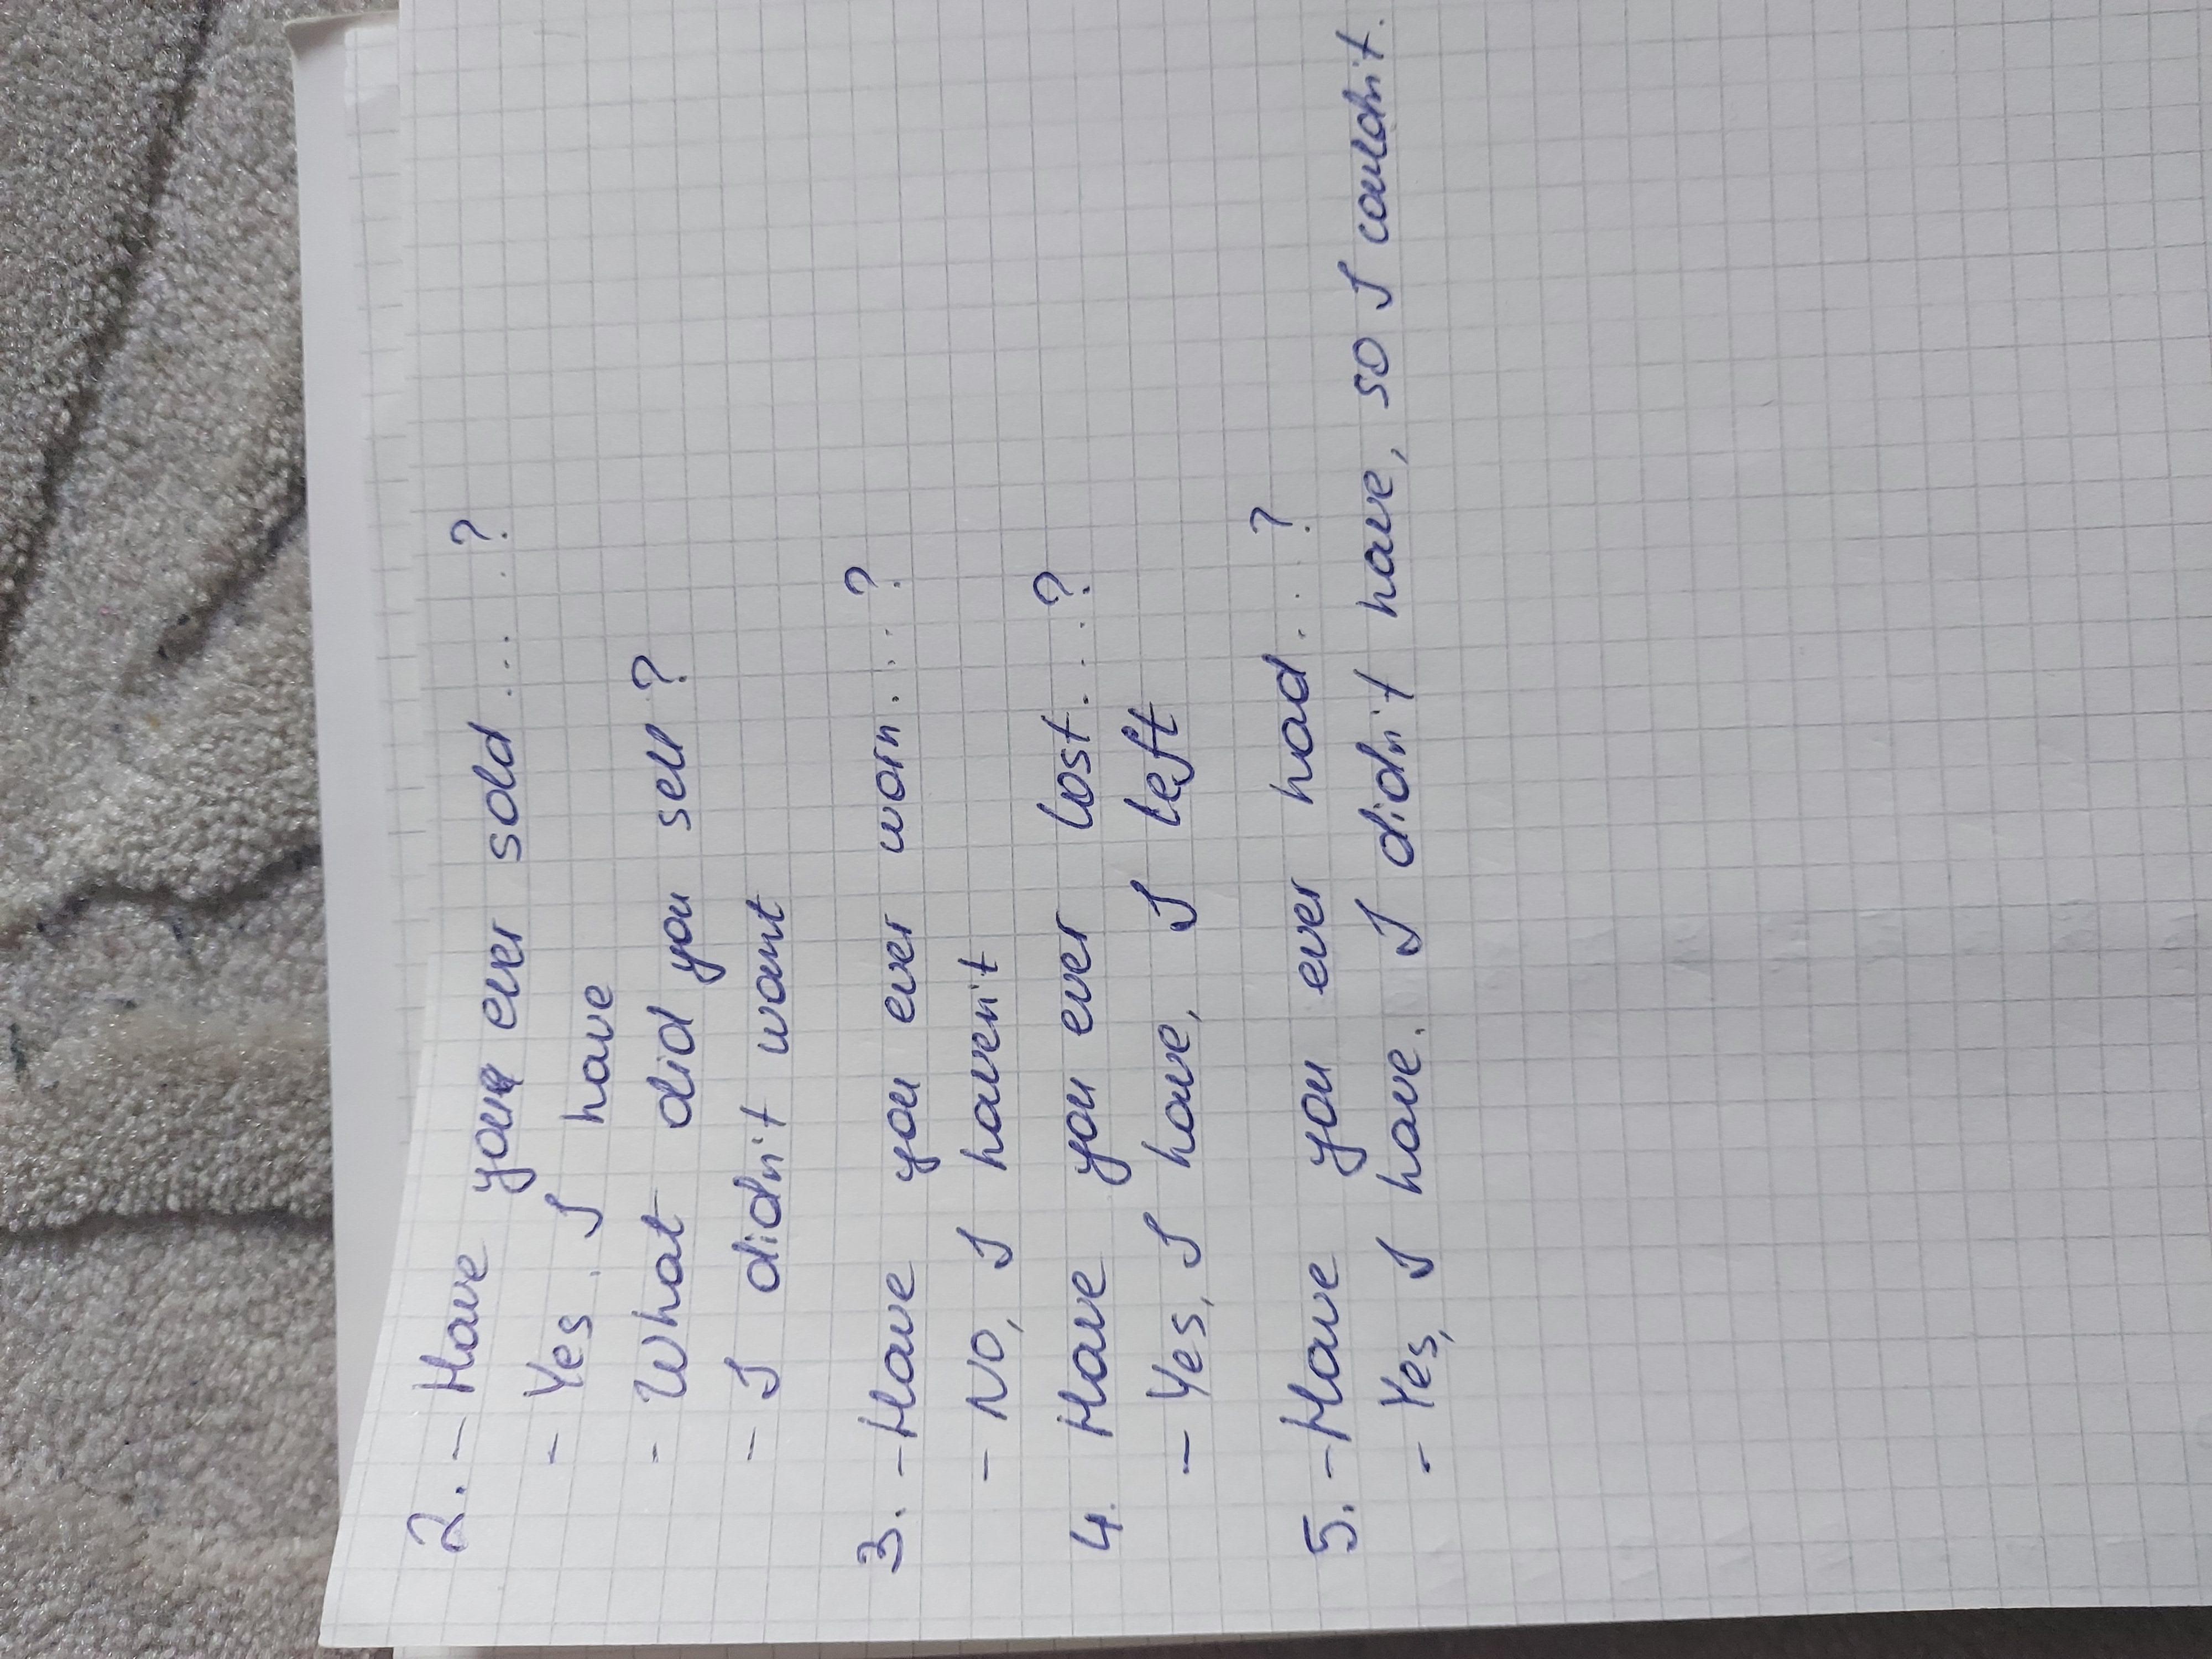 2. - Have you ever sold ... . ?
- Yes. I have
- What did you sell?
- I didn't want
3. - Have you ever worn . . . ?
- No, I haven't
4. Have you ever lost . . . ?
- Yes, I have, I left
5. - Have you ever had . . . ?
- Yes, I have. I didn't have, so I couldn't.